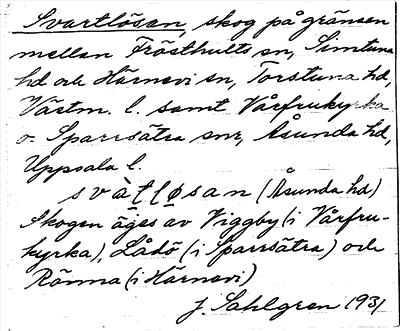 Svartlösan, skog på gränsen
mellan Frösthults sn, Simtuna
hd och Härnevi sn, Torstuna hd,
Västm. l. samt Vårfrukyrka
o. Sparrsätra snr, Åsunda hd,
Uppsala l.
svàṭḷøsan (Åsunda hd)
Skogen äges av Viggby (i Vårfru-
kyrka), Lådö (i Sparrsätra) och
Ränna (i Härnevi)
J. Sahlgren 1931